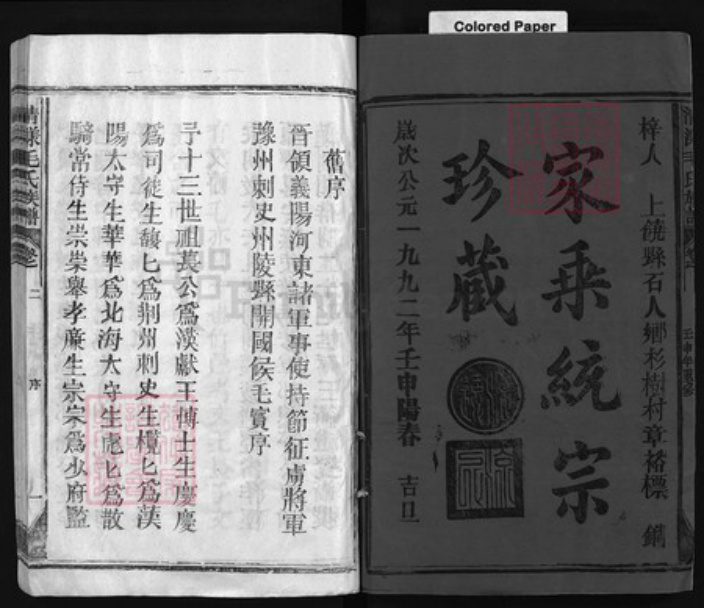 Colored Paper
梓人 上饒縣石人鄉杉樹村章裕標 鐫
家乘統宗
珍藏
歲次公元一九九二年壬申陽春 吉旦
舊序
晉領義陽河東諸軍事使持節征虜將軍
豫州刺史州陵縣開國侯毛寶序
予十三世祖萇公爲漢獻王博士生慶慶
爲司徒生馥匕爲荆州刺史生欖匕爲漢
陽太守生華華爲北海太守生彪匕爲散
騎常侍生崇崇舉孝廉生宗宗爲少府監
清漾毛氏族譜 卷之
二
序
一